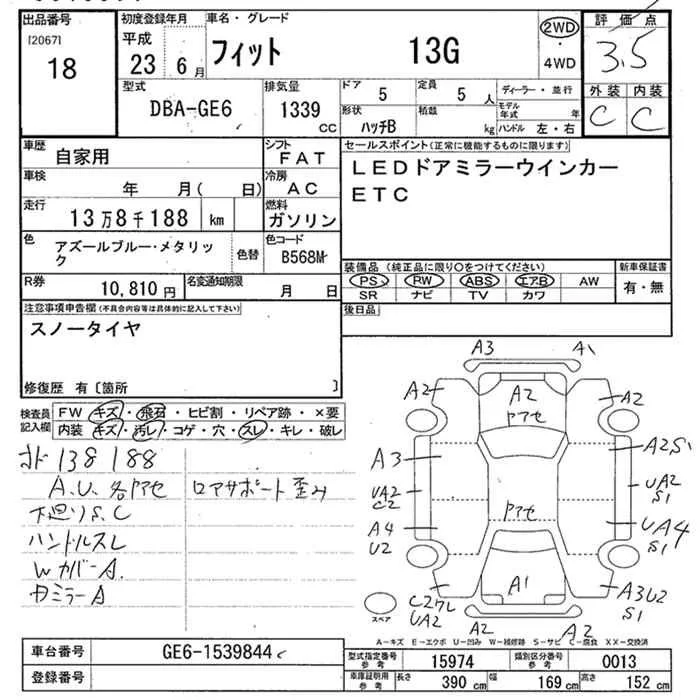 出品番号 初度登録年月 車名・グレード 2WD 評価点
[2067] 平成 フィット 13G ・ 3.5
18 23 6月 4WD
型式 排気量 ドア 定員 ディーラー・並行 外装 内装
DBA-GE6 1339 CC 5 5人 モデル年式 年 C C
形状 積載
ハッチB kg ハンドル 左・右
車歴 シフト セールスポイント(正常に機能するものに限ります)
自家用 FAT LEDドアミラーウインカー
車検 冷房 ETC
年 月( 日) AC
走行 燃料
13万8千188 km ガソリン
色 アズールブルー・メタリック 色替 色コード
B568M
装備品(純正品に限り○をつけてください) 新車保証書
PS PW ABS エアB AW 有・無
SR ナビ TV カワ
R券 10,810円 名変通知期限 月 日
後日品
注意事項申告欄(不具合内容等は具体的に記入して下さい)
スノータイヤ
修復歴 有〔箇所 〕
検査員記入欄 FW キズ・飛石・ヒビ割・リペア跡・×要
内装 キズ・汚レ・コゲ・穴・スレ・キレ・破レ
138188
A.U.各ヤアセ ロアサポート歪み
下廻りS.C
ハンドルスレ
WカバーA.
ミラーA
A3 A1
A2 A2 A2
ヤアセ
A3 A2S1
UA2 UA2
C2 S1
ヤアセ
A4 UA4
U2 S1
A1 A3U2
S1
UA2
スペア
A2 A2
A-キズ E-エクボ U-凹み W-補修跡 S-サビ C-腐食 XX-交換済
車台番号 GE6-1539844
登録番号
型式指定番号 参考 15974 類別区分番号 参考 0013
車庫証明用 参考 長さ 390 cm 幅 169 cm 高さ 152 cm